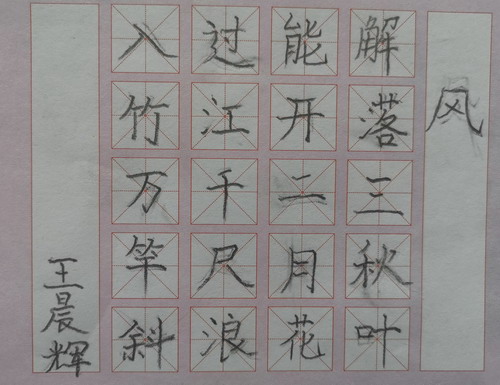 风
解落三秋叶
能开二月花
过江千尺浪
入竹万竿斜
王晨辉